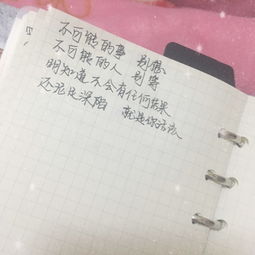 不可能的事 别想
不可能的人 别等
明知道不会有任何结果
还泥足深陷 就是你活该